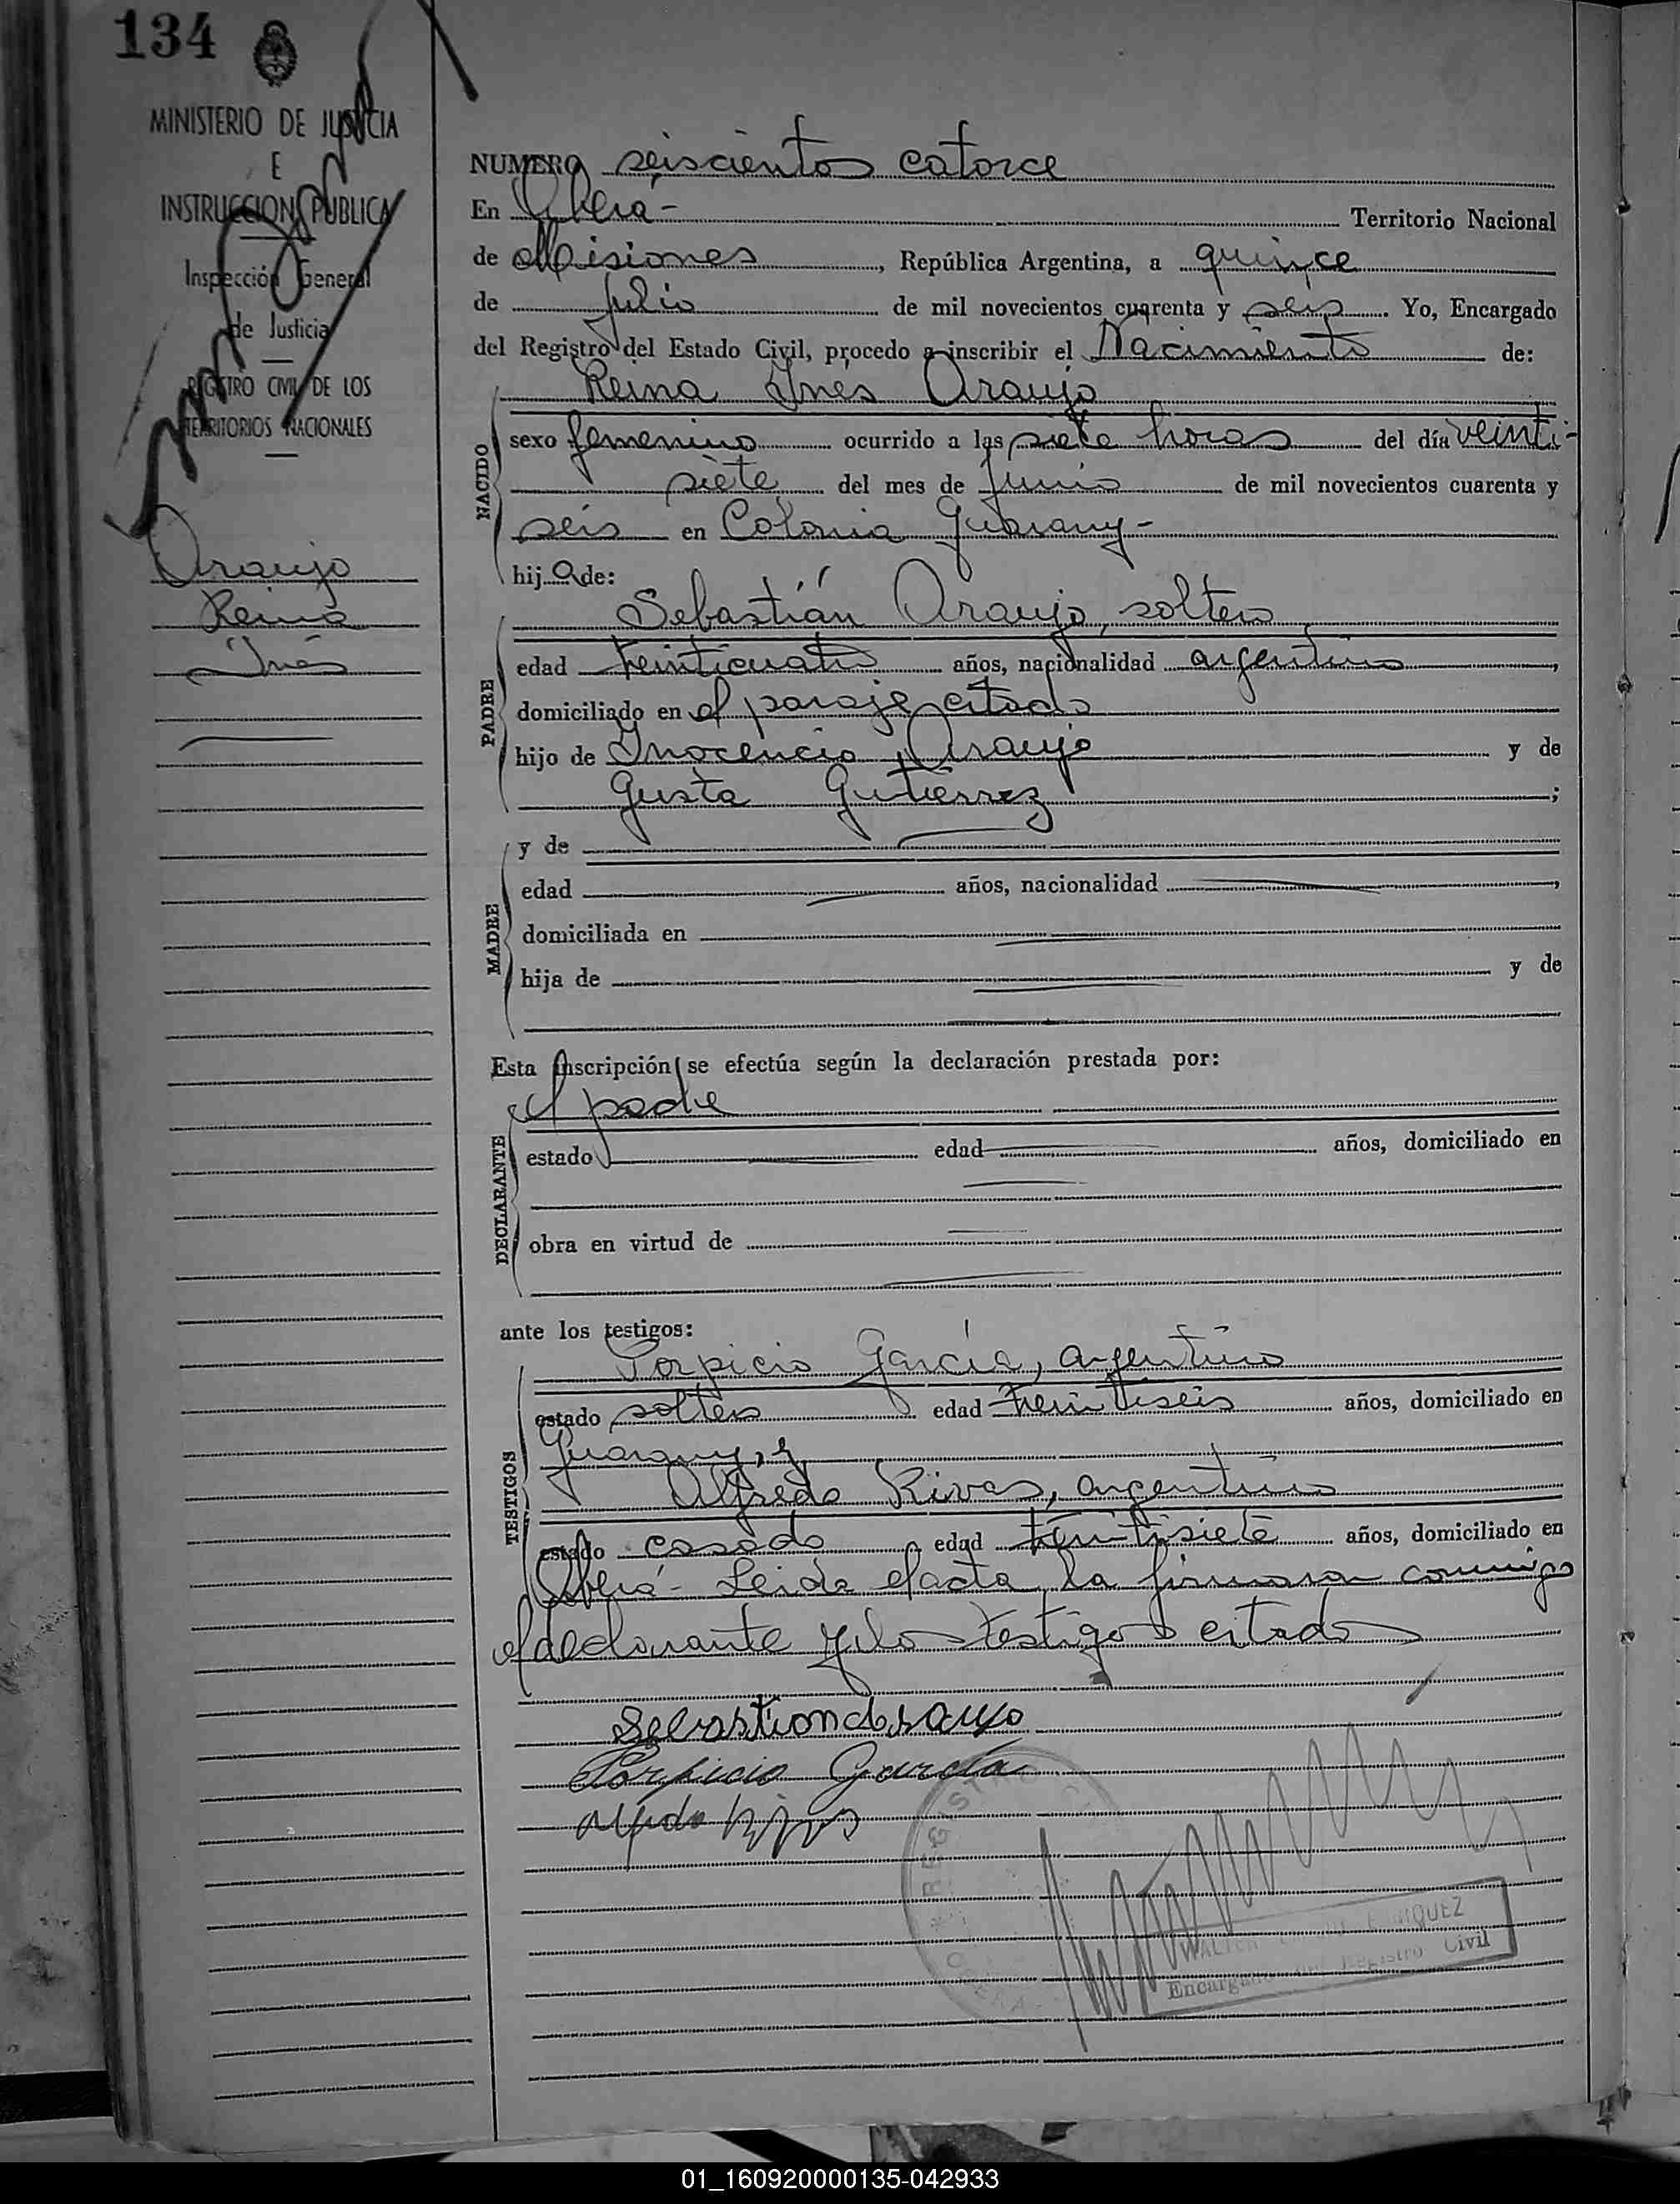 134
MINISTERIO DE JUSTICIA
E
INSTRUCCION PUBLICA
Inspección General
de Justicia
REGISTRO CIVIL DE LOS
TERRITORIOS NACIONALES
Araujo
Reina
Inés
NUMERO seiscientos catorce
En Oberá- Territorio Nacional
de Misiones, República Argentina, a quince
de Julio de mil novecientos cuarenta y seis. Yo, Encargado
del Registro del Estado Civil, procedo a inscribir el Nacimiento de:
Reina Inés Araujo
NACIDO
sexo femenino ocurrido a las siete horas del día veinti-
siete del mes de Junio de mil novecientos cuarenta y
seis en Colonia Guarany-
hija de:
Sebastián Araujo, soltero
PADRE
edad treinticuatro años, nacionalidad argentino,
domiciliado en el paraje citado
hijo de Inocencio Araujo y de
Gusta Gutierrez;
MADRE
y de
edad años, nacionalidad,
domiciliada en
hija de y de
Esta inscripción se efectúa según la declaración prestada por:
el padre
DECLARANTE
estado edad años, domiciliado en
obra en virtud de
ante los testigos:
Porpicio García, argentino
TESTIGOS
estado soltero edad treintiseis años, domiciliado en
Guarany, y
Alfredo Rivas, argentino
estado casado edad treintisiete años, domiciliado en
Oberá- Leida el acta, la firmaron conmigo
el declarante y los testigos citados
Sebastian Araujo
Porpicio García
REGISTRO
OBERA
WALTER ENRIQUEZ
Encargado del Registro Civil
01_160920000135-042933